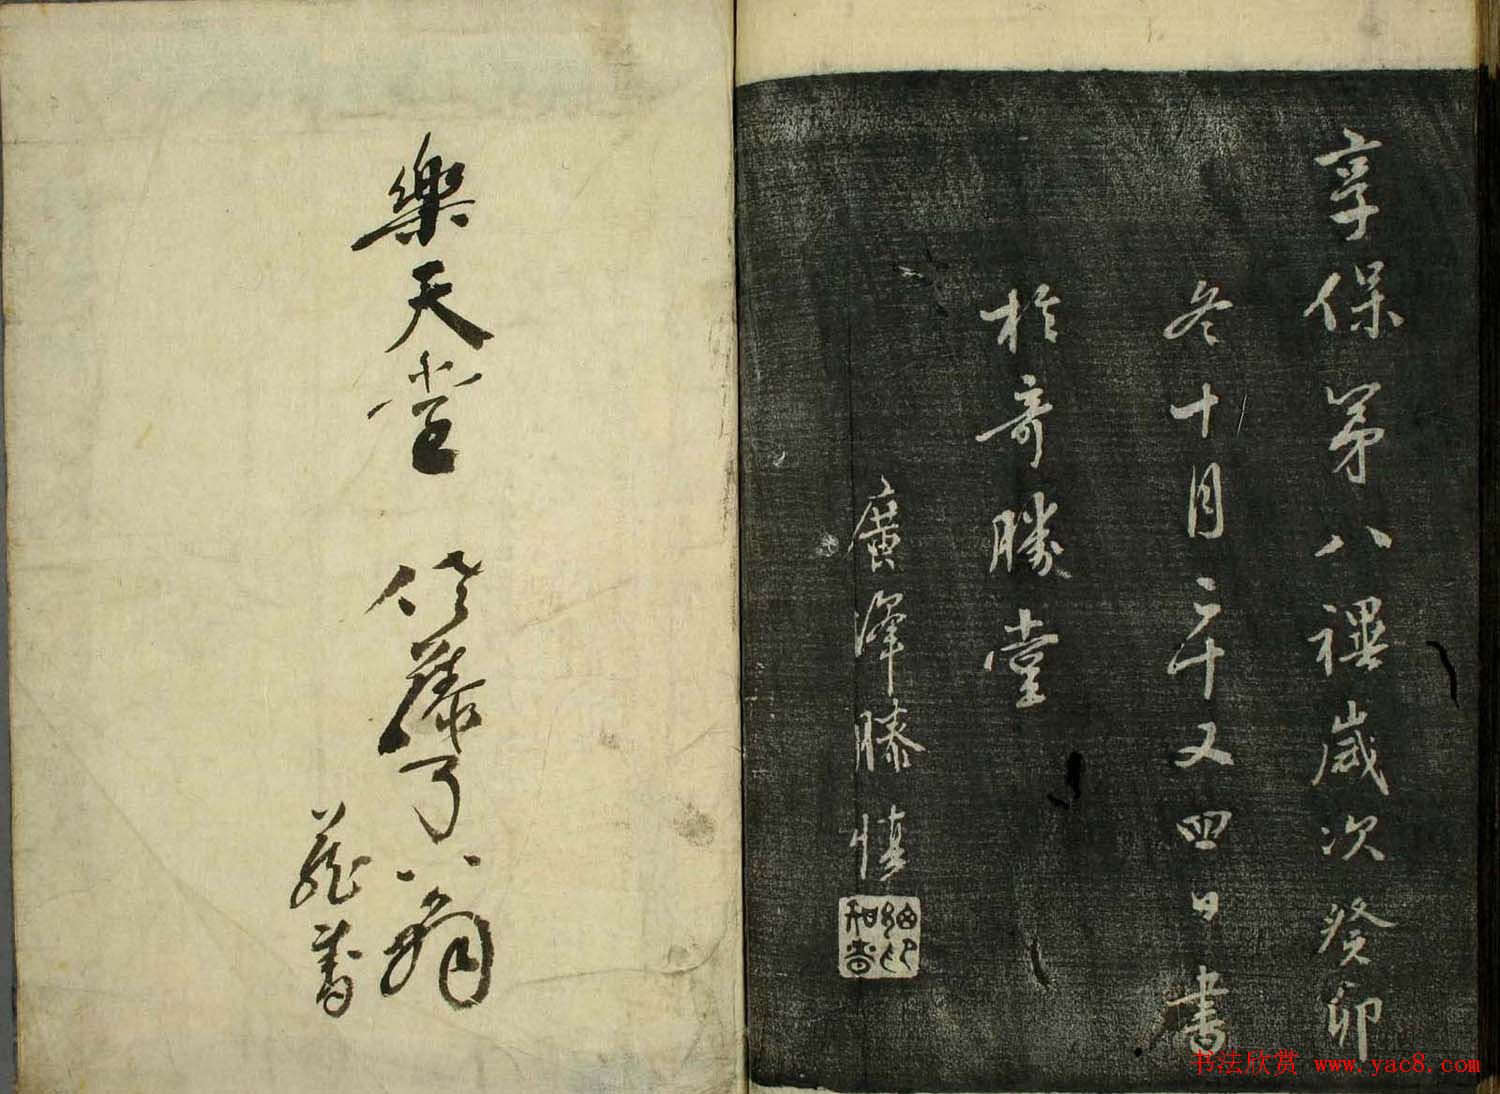 享保第八禩歲次癸卯
冬十月二十又四日書
於奇勝堂
廣澤滕慎
樂天堂 佐藤了翁
藏書
书法欣赏 www.yac8.com